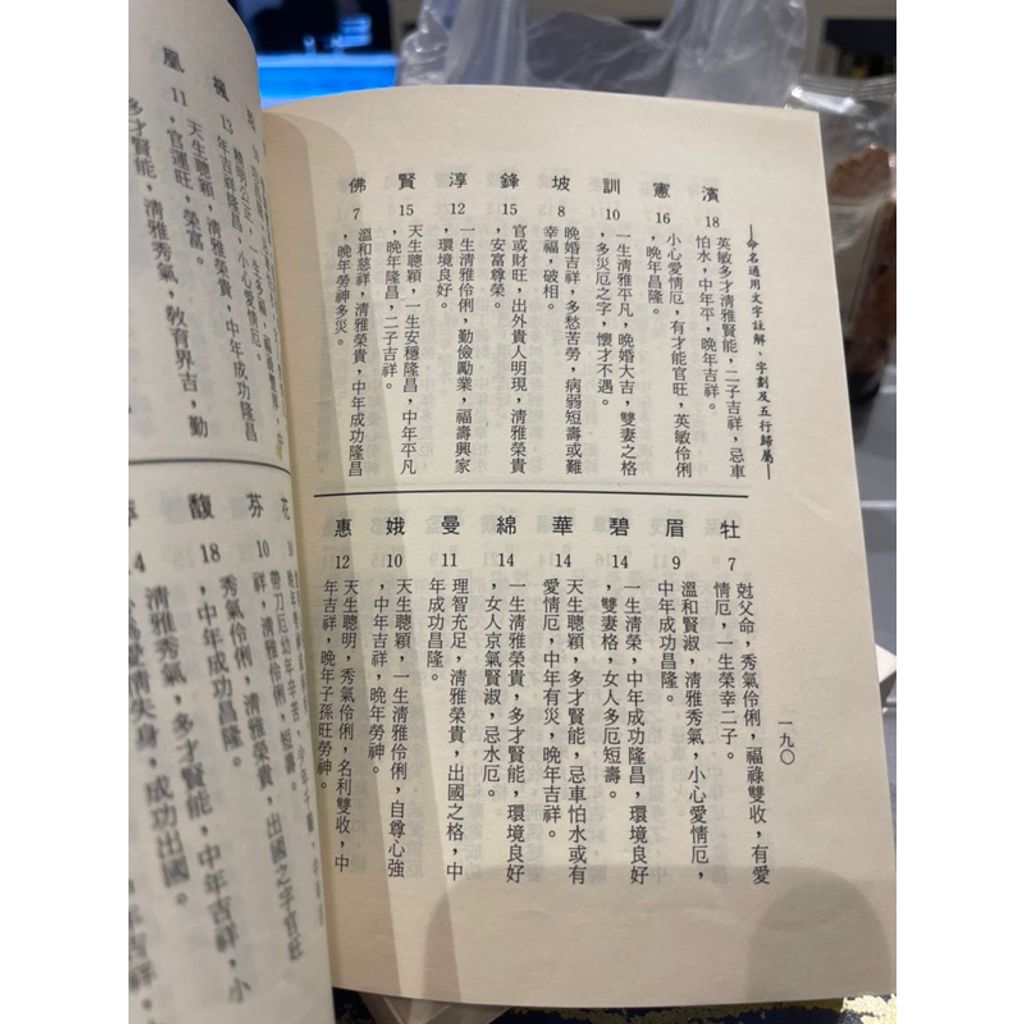 —命名通用文字註解、字劃及五行歸屬—
濱
18
英敏多才清雅賢能，二子吉祥，忌車
怕水，中年平，晚年吉祥。
憲
16
小心愛情厄，有才能官旺，英敏伶俐
，晚年昌隆。
訓
10
一生清雅平凡，晚婚大吉，雙妻之格
，多災厄之字，懷才不遇。
坡
8
晚婚吉祥，多愁苦勞，病弱短壽或難
幸福，破相。
鋒
15
官或財旺，出外貴人明現，清雅榮貴
，安富尊榮。
淳
12
一生清雅伶俐，勤儉勵業，福壽興家
，環境良好。
賢
15
天生聰穎，一生安穩隆昌，中年平凡
，晚年隆昌，二子吉祥。
佛
7
溫和慈祥，清雅榮貴，中年成功隆昌
，晚年勞神多災。
牡
7
尅父命，秀氣伶俐，福祿雙收，有愛
情厄，一生榮幸二子。
眉
9
溫和賢淑，清雅秀氣，小心愛情厄，
中年成功昌隆。
碧
14
一生清榮，中年成功隆昌，環境良好
，雙妻格，女人多厄短壽。
華
14
天生聰穎，多才賢能，忌車怕水或有
愛情厄，中年有災，晚年吉祥。
綿
14
一生清雅榮貴，多才賢能，環境良好
，女人京氣賢淑，忌水厄。
曼
11
理智充足，清雅榮貴，出國之格，中
年成功昌隆。
娥
10
天生聰穎，一生清雅伶俐，自尊心強
，中年吉祥，晚年勞神。
惠
12
天生聰明，秀氣伶俐，名利雙收，中
年吉祥，晚年子孫旺勞神。
一九〇
楓
13
年吉祥隆昌，小心愛情厄。
凰
11
天生聰穎，清雅榮貴，中年成功隆昌
，官運旺，榮富。
多才賢能，清雅秀氣，教育界吉，勤
花
芬
10
帶刀厄幼年辛苦，
祥，清雅伶俐，短壽。
馥
18
秀氣伶俐，清雅榮貴，出國之字官旺
，中年成功昌隆。
清雅秀氣，多才賢能，中年吉祥，小
心愛情失身，成功出國。